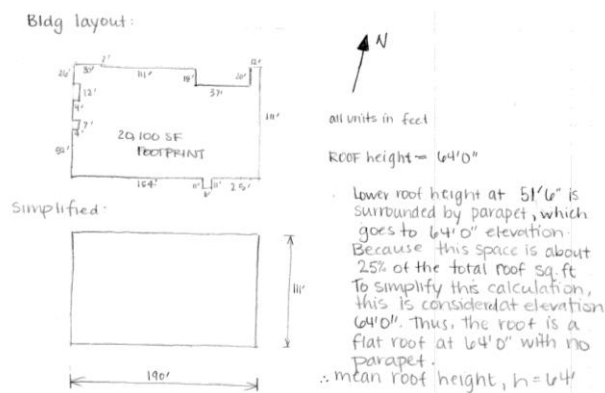 Bldg layout:
N
2'
12'
26'
30'
111'
18'
20'
37'
12'
4'
7'
4'
111'
20,100 SF
FOOTPRINT
164'
11'
11'
25'
all units in feet
ROOF height = 64'0"
Lower roof height at 51'6" is
surrounded by parapet, which
goes to 64'0" elevation.
Because this space is about
25% of the total roof sq.ft
To simplify this calculation,
this is considerdat elevation
64'0". Thus, the roof is a
flat roof at 64'0" with no
parapet.
∴ mean roof height, h = 64'
Simplified:
111'
190'